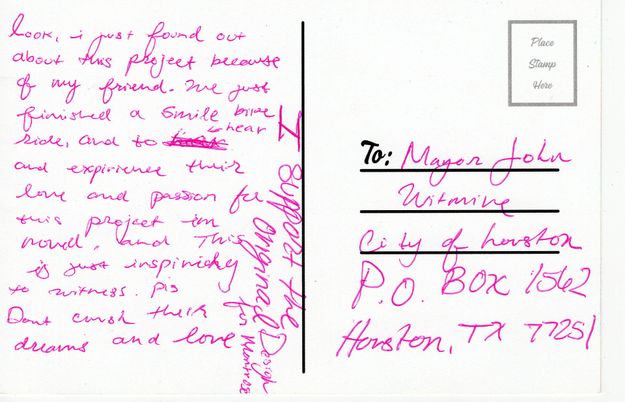 look, i just found out
about this project because
of my friend. We just
finished a 5mile bike
ride, and to hear
and expirience their
love and passion for
this project im
moved, and This
is just inspiring
to witness. pls
Dont crush their
dreams and love
I support the
Original Design
for Montrose
Place
Stamp
Here
To: Mayor John
Witmire
City of houston
P.O. BOX 1562
Houston, TX 77251